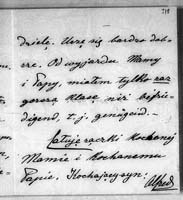 dziele. Uczę się bardzo dob-
rze. Od wyjazdu Mamy
i Papy, miałem tylko raz
gorszą klasę niż
t. j. genügend.
Całuję rączki kochanej
Mamie i kochanemu
Papie. Kochający syn:
Alfred